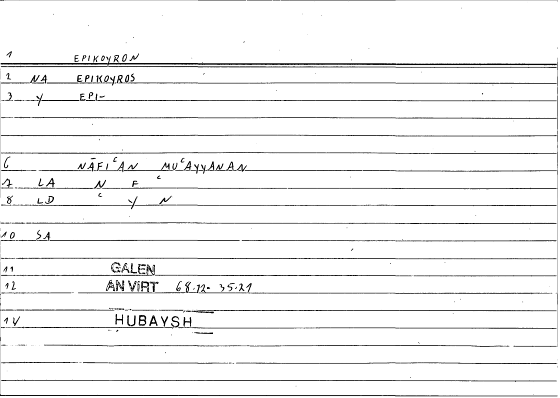 1 EPIKOYRON
2 NA EPIKOYROS
3 Y EPI-
6 NĀFIʿAN MUʿAYYANAN
7 LA N F ʿ
8 LD ʿ Y N
10 SA
11 GALEN
12 AN VIRT 68.12- 35.21
1V HUBAYSH